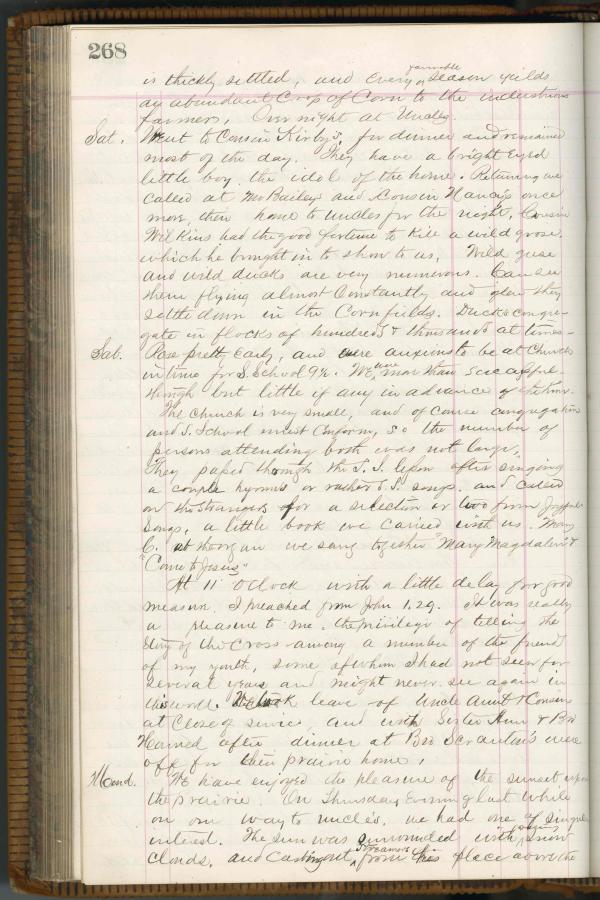 268
is thickly settled, and every ^favorable season yields
an abundant Crop of Corn to the industrious
farmers, Over night at Uncles.
Sat. Went to Cousin Kirby's, for dinner and remained
most of the day. They have a bright eyed
little boy, the idol of the home. Returning we
called at Mr Bailey's and Cousin Nancy's once
more, then home to Uncles for the night. Cousin
Wilkins had the good fortune to kill a wild goose,
which he brought in to show to us, Wild geese
and wild ducks are very numerous. Can see
them flying almost Constantly and how they
settle down in the Cornfields. Ducks congre-
gate in flocks of hundreds & thousands at times—
Sab. Rose pretty Early, and were anxious to be at Church
in time for S. School 9½. We ^were more than successful-
though but little if any in advance of the time.
The Church is very small, and of course congregation
and S. School must Conform, so the number of
persons attending both was not large,
They passed through the S. S. lesson after singing
a couple hymns or rather S. S. songs. and called
on the strangers for a selection or two from Joyful
Songs, a little book we carried with us. Mary
C. at the organ we sang together "Mary Magdalene" &
"Come to Jesus"
At 11 O'Clock with a little delay for good
measure, I preached from John 1.29. It was really
a pleasure to me, the privilege of telling the
Story of the Cross among a number of the friends
of my youth, some of whom I had not seen for
several years and might never see again in
this world. We took leave of Uncle Aunt & Cousins
at Close of service, and with Sister Ann & Bro
Harned after dinner at Bro Scranton's were
off for their prairie home,
Mond. We have enjoyed the pleasure of the sunset upon
the prairie. On Thursday Evening last while
on our way to uncle's, we had one of singular
interest. The sun was surrounded with snow
Clouds, and Casting out ^streamers from his place above the